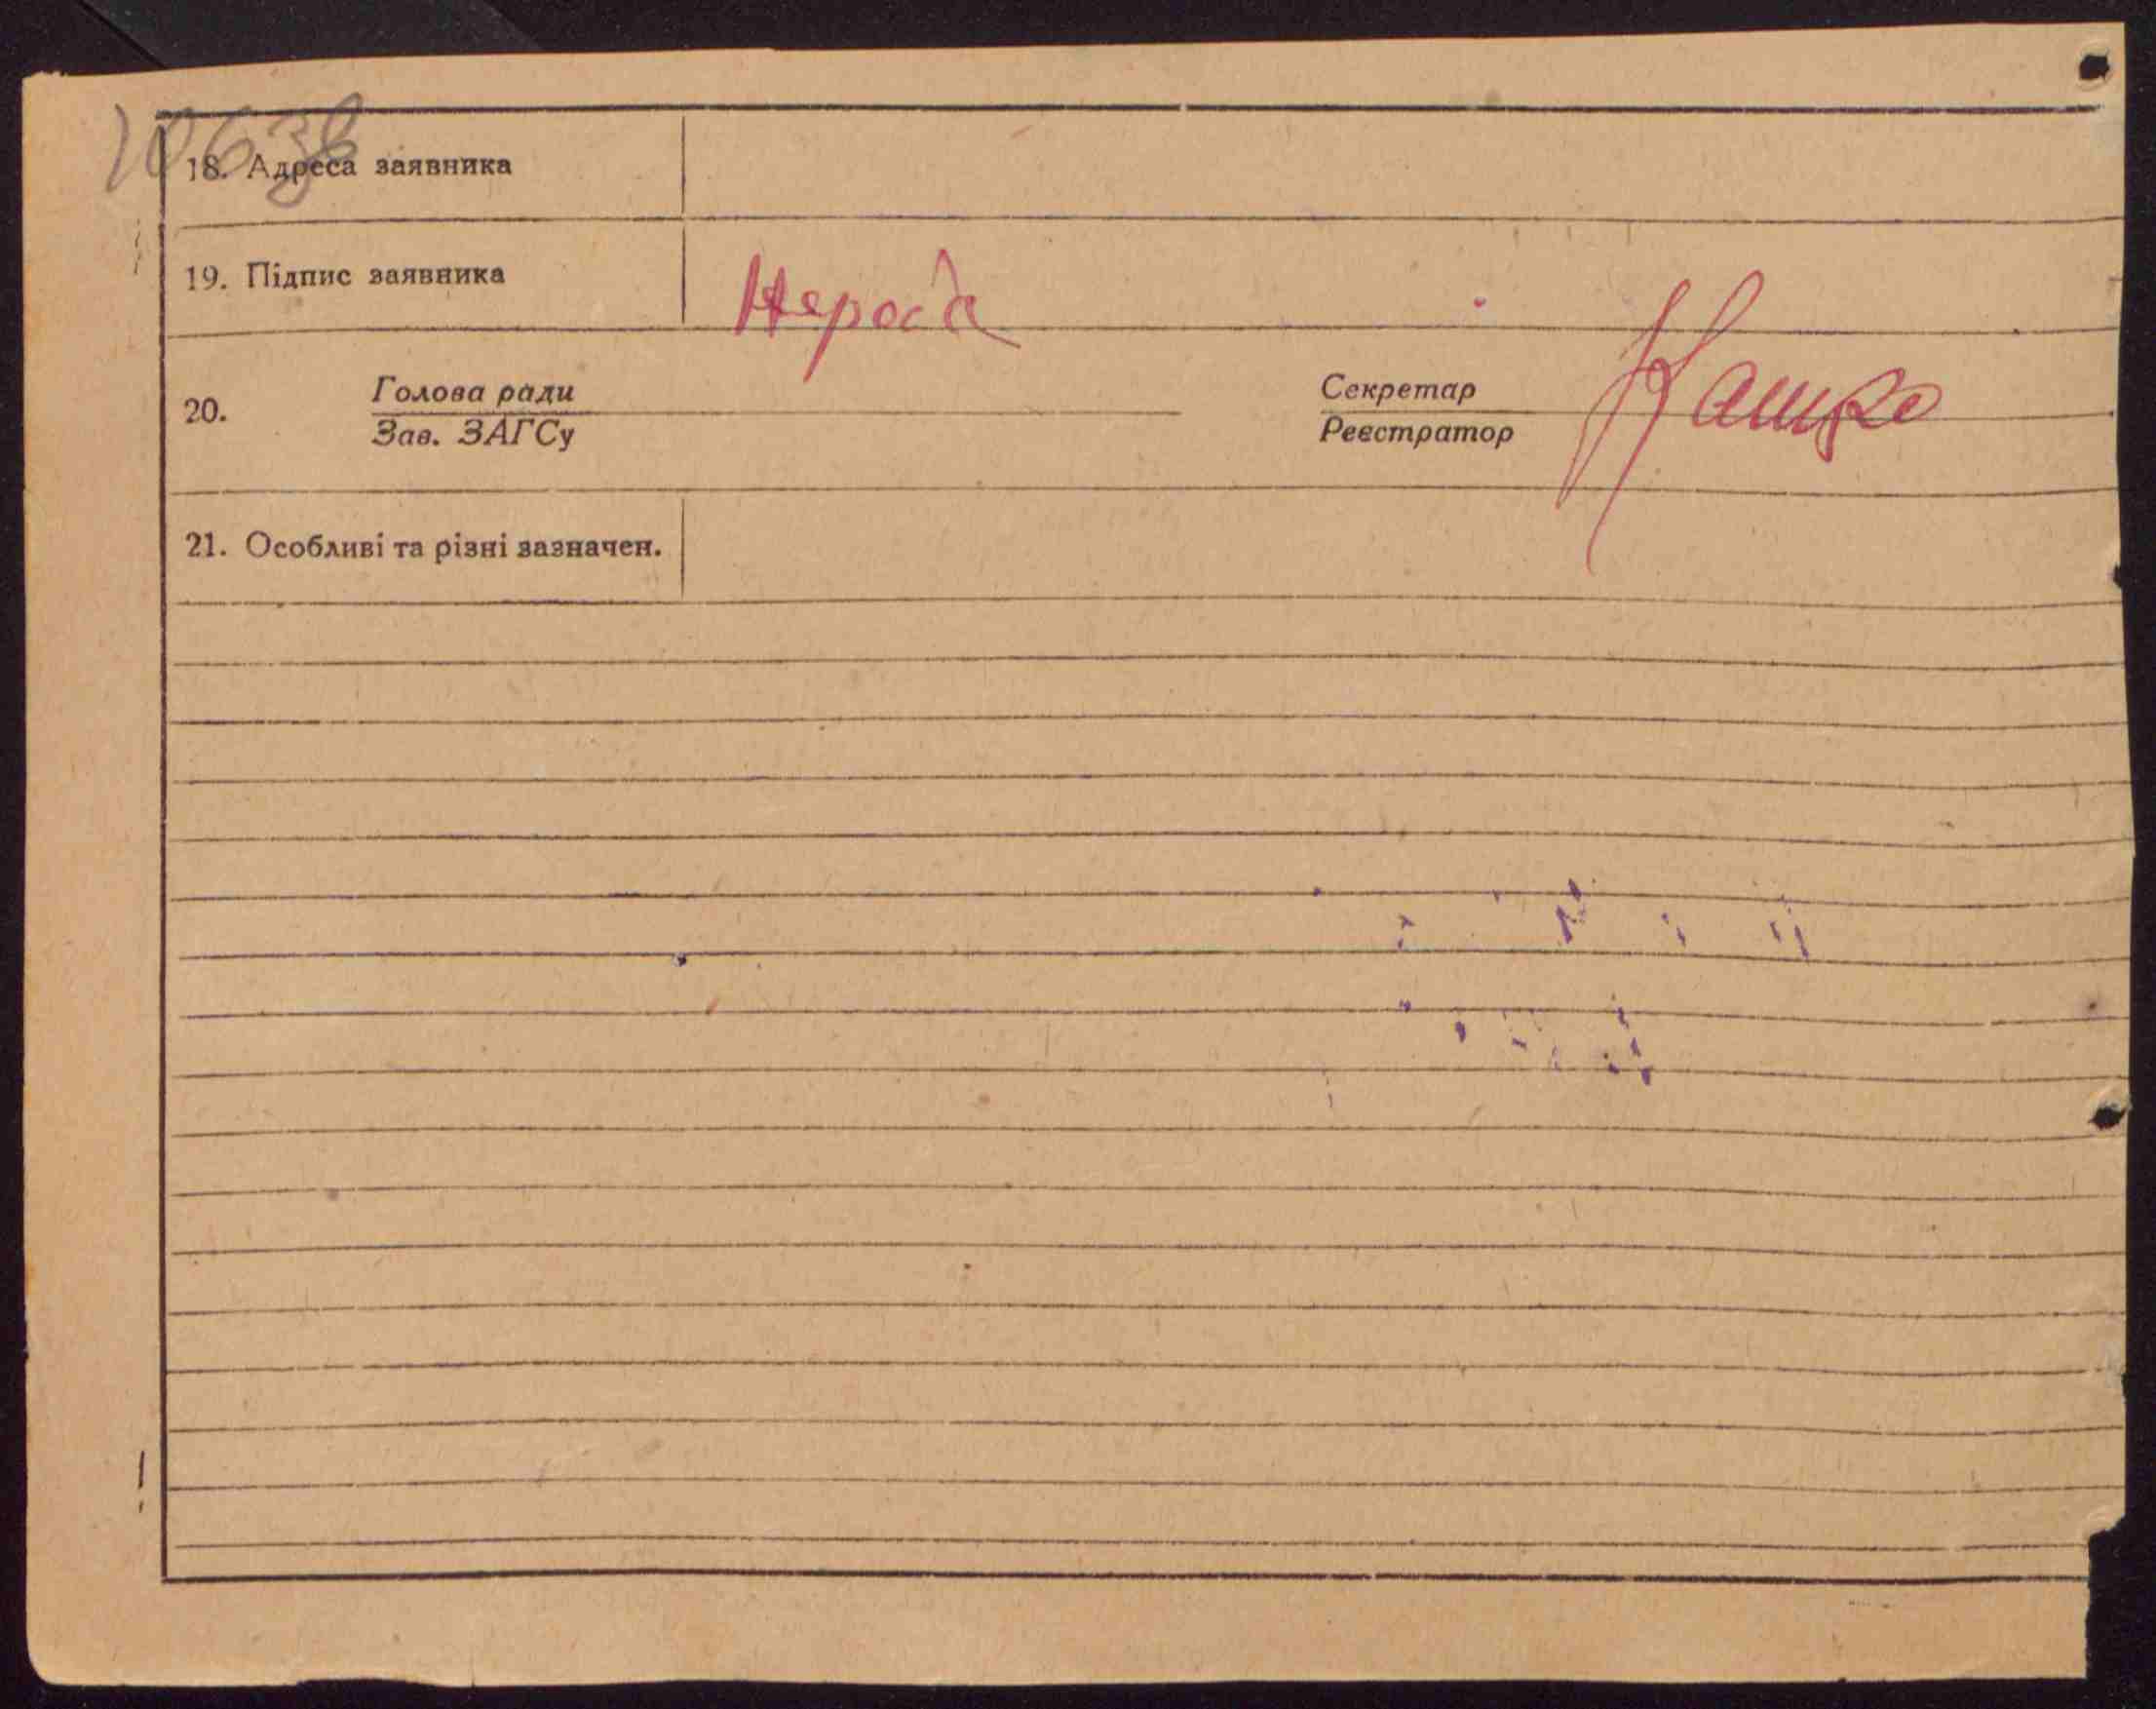 18. Адреса заявника
19. Підпис заявника
20. Голова ради
Зав. ЗАГСу
Секретар
Реєстратор
21. Особливі та різні зазначен.